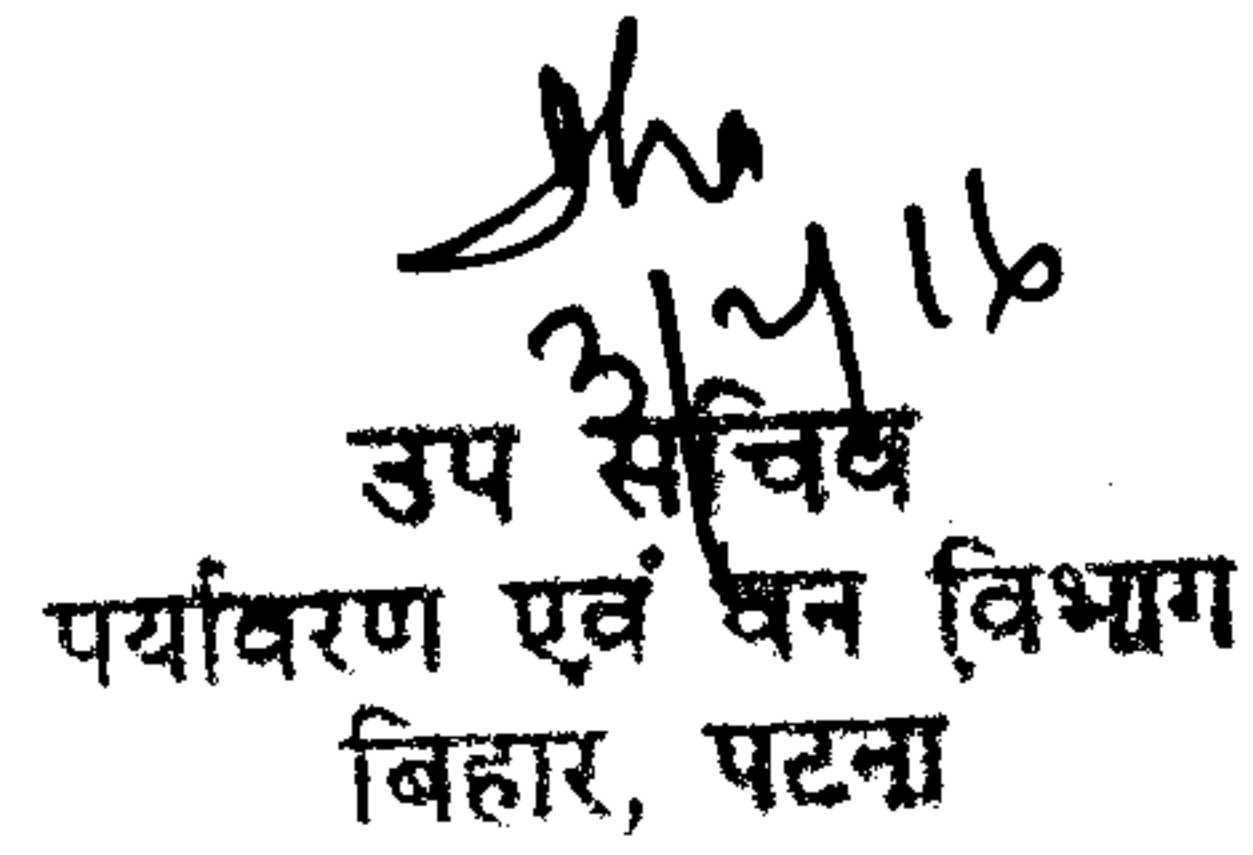 उप सचिव
पर्यावरण एवं वन विभाग
बिहार, पटना